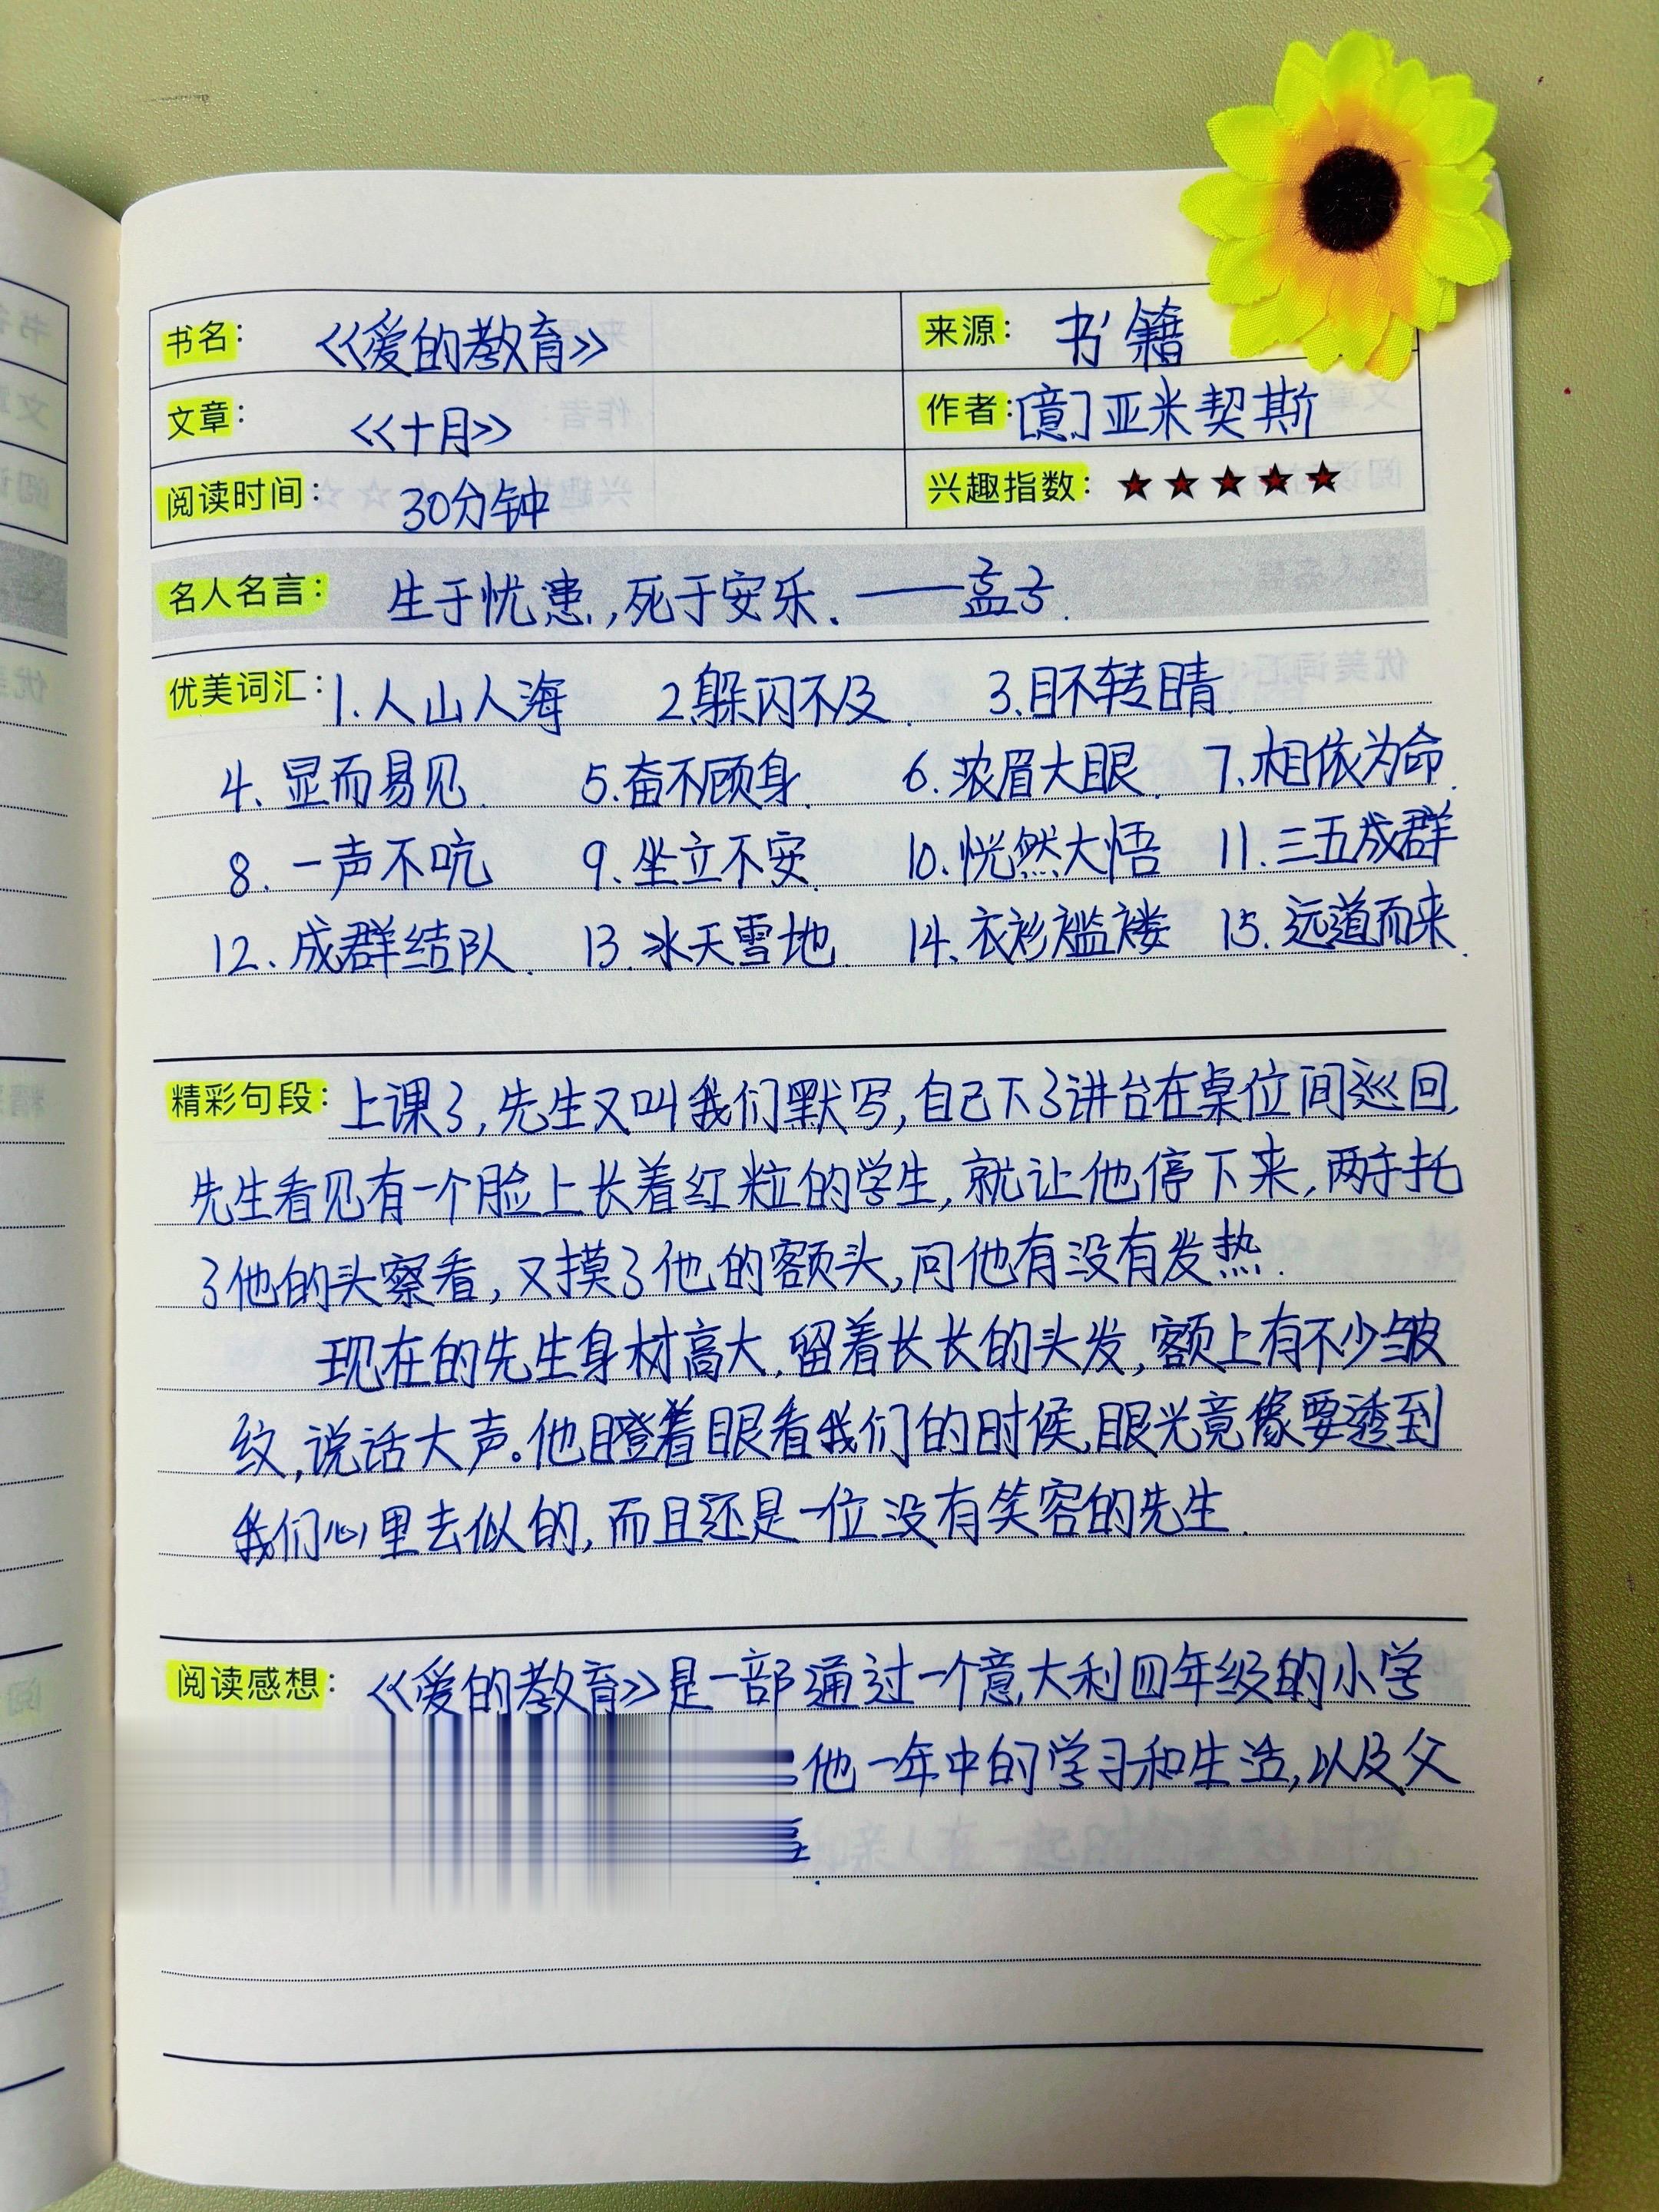 书名： 《爱的教育》 来源： 书籍
文章： 《十月》 作者：[意]亚米契斯
阅读时间： 30分钟 兴趣指数：★★★★★
名人名言： 生于忧患，死于安乐. ——孟子.
优美词汇：1.人山人海 2.躲闪不及. 3.目不转睛.
4、显而易见. 5.奋不顾身. 6.浓眉大眼. 7.相依为命.
8.一声不吭 9.坐立不安. 10.恍然大悟 11.三五成群
12、成群结队. 13.冰天雪地. 14.衣衫褴褛 15.远道而来.
精彩句段：上课了,先生又叫我们默写,自己下了讲台在桌位间巡回.
先生看见有一个脸上长着红粒的学生,就让他停下来,两手托
了他的头察看,又摸了他的额头,问他有没有发热.
现在的先生身材高大,留着长长的头发,额上有不少皱
纹,说话大声。他瞪着眼看我们的时候,眼光竟像要透到
我们心里去似的,而且还是一位没有笑容的先生.
阅读感想： 《爱的教育》是一部通过一个意大利四年级的小学
他一年中的学习和生活,以及父